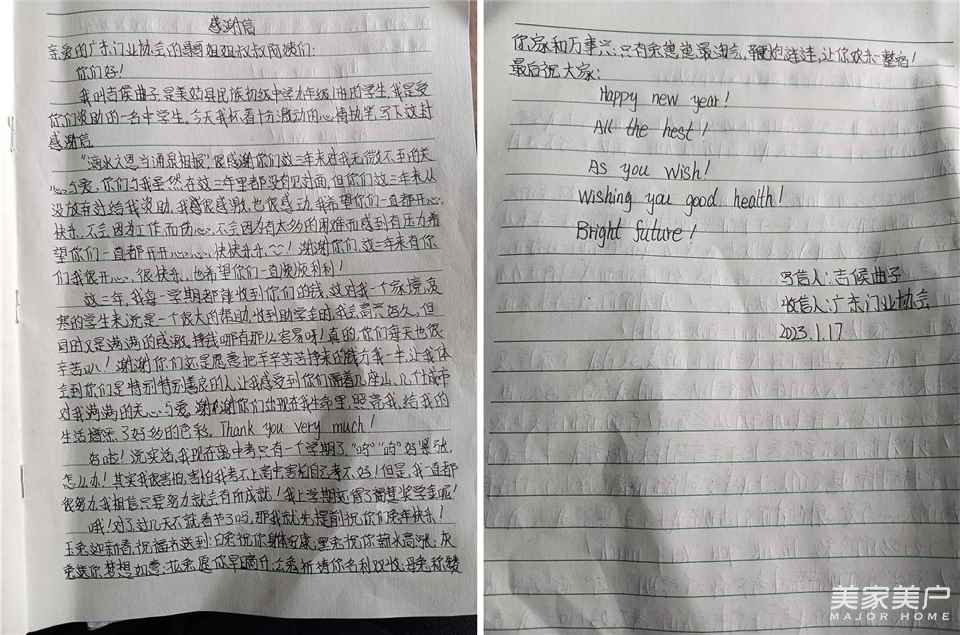 感谢信
亲爱的广东门业协会的哥哥姐姐叔叔阿姨们:
你们好!
我叫吉候曲子,是美姑县民族初级中学九年级1班的学生,我是受
你们资助的一名中学生。今天我怀着十分激动的心情执笔写下这封
感谢信
"滴水之恩,当涌泉相报"很感谢你们这三年来对我无微不至的关
心与爱,你们与我虽然在这三年里都没有见过面,但你们这三年来从
没放弃过给我资助,我感很感激,也很感动,我希望你们一直都开心
快乐,不会因为工作而伤心,不会因为有太多的困难而感到有压力,希
望你们一直都开开心心,快快乐乐!谢谢你们,这三年来有你
们我很开心、很快乐,也希望你们一直顺顺利利!
这三年,我每一学期都能收到你们的钱,这对我一个家境贫
寒的学生来说是一个很大的帮助,收到助学金时,我会高兴好久,但
同时又是满满的感激,挣钱哪有那么容易呀!真的,你们每天也很
辛苦!谢谢你们还是愿意把辛辛苦苦挣来的钱分我一半,让我体
会到你们是特别特别善良的人,让我感受到你们隔着几座山、几个城市
对我满满的关心与爱,谢谢谢谢你们出现在我生命里,照亮我,给我的
生活增添了好多的色彩。Thank you very much!
好啦!说实话,我现在离中考只有一个学期了"哼""哼"好紧张,
怎么办!其实我很害怕,害怕我考不上高中,害怕自己考不好!但是,我一直都
很努力,我相信只要努力就会有所成就!我上学期还得了一等奖学金呢!
哦!对了这几天不就春节了吗,那我就先提前祝你们兔年快乐!
玉兔迎新春,祝福齐送到:白兔祝你身体安康,黑兔祝你薪水高涨,灰
兔送你梦想如意,花兔愿你早晒升,公兔祈祷你名利双收,母兔称赞
你家和万事兴,只有兔崽崽最淘气,鞭炮连连,让你欢乐一整宿!
最后祝大家:
Happy new year!
All the hest!
As you wish!
Wishing you good health!
Bright future!
写信人:吉候曲子
收信人:广东门业协会
2023.1.17
美家美户
MAJOR HOME